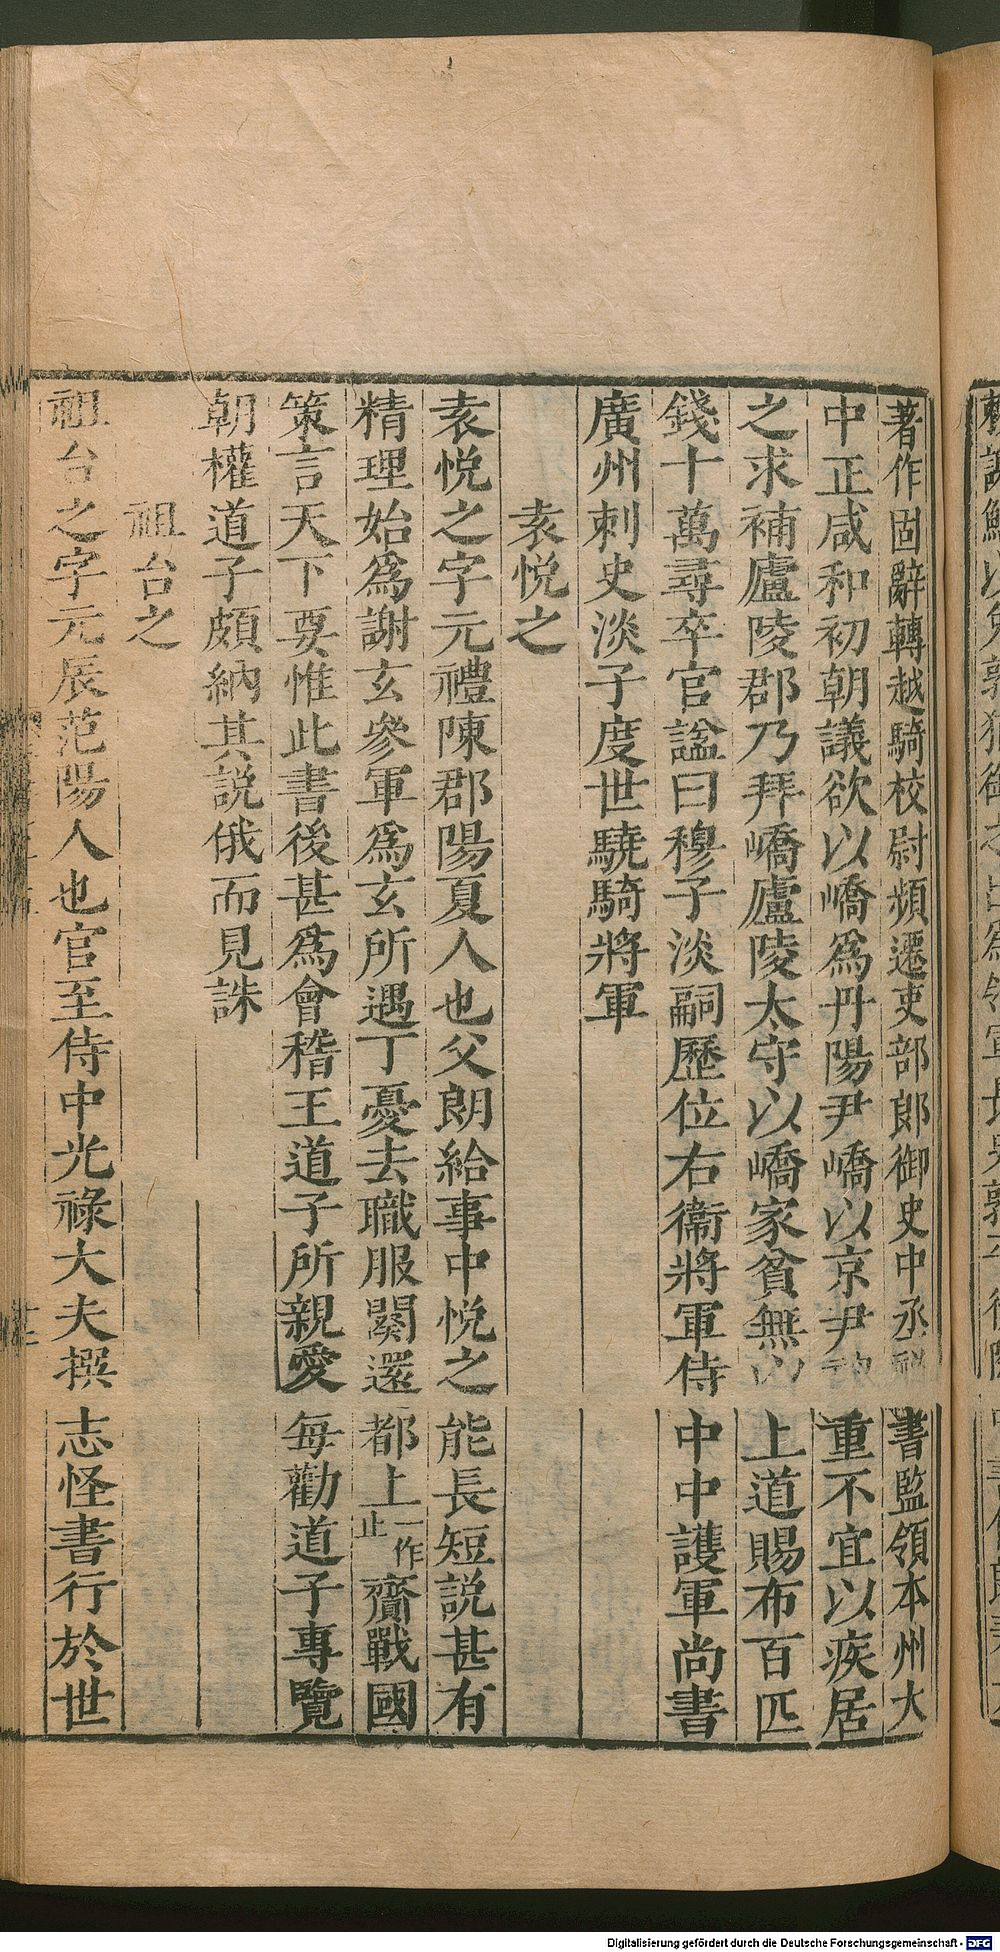 著作固辭轉越騎校尉頻遷吏部郎御史中丞祕書監領本州大
中正咸和初朝議欲以嶠爲丹陽尹嶠以京尹重不宜以疾居
之求補廬陵郡乃拜嶠廬陵太守以嶠家貧無以上道賜布百匹
錢十萬尋卒官謚曰穆子淡嗣歷位右衞將軍侍中中護軍尚書
廣州刺史淡子度世驍騎將軍
袁悅之
袁悅之字元禮陳郡陽夏人也父朗給事中悅之能長短説甚有
精理始爲謝玄參軍爲玄所遇丁憂去職服闋還都上一作止齎戰國
策言天下要惟此書後甚爲會稽王道子所親愛每勸道子專覽
朝權道子頗納其説俄而見誅
祖台之
祖台之字元辰范陽人也官至侍中光祿大夫撰志怪書行於世
Digitalisierung gefördert durch die Deutsche Forschungsgemeinschaft - DFG